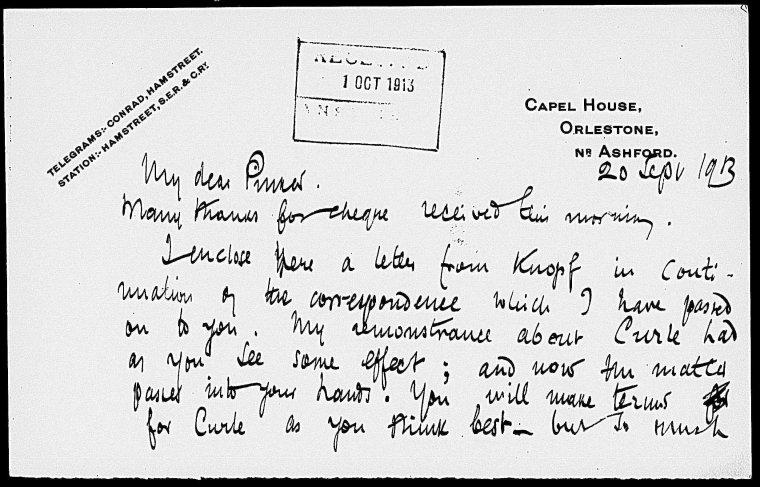 TELEGRAMS:- CONRAD, HAMSTREET.
STATION:- HAMSTREET, S.E.R. & C.RY.
RECEIVED
1 OCT 1913
CAPEL HOUSE,
ORLESTONE,
NR ASHFORD.
20 Sept 1913
My dear Pinker.
Many thanks for cheque received this morning.
I enclose here a letter from Knopf in conti-
nuation of the correspondence which I have passed
on to you. My remonstrance about Curle had
as you see some effect; and now the matter
passes into your hands. You will make terms
for Curle as you think best – but so much